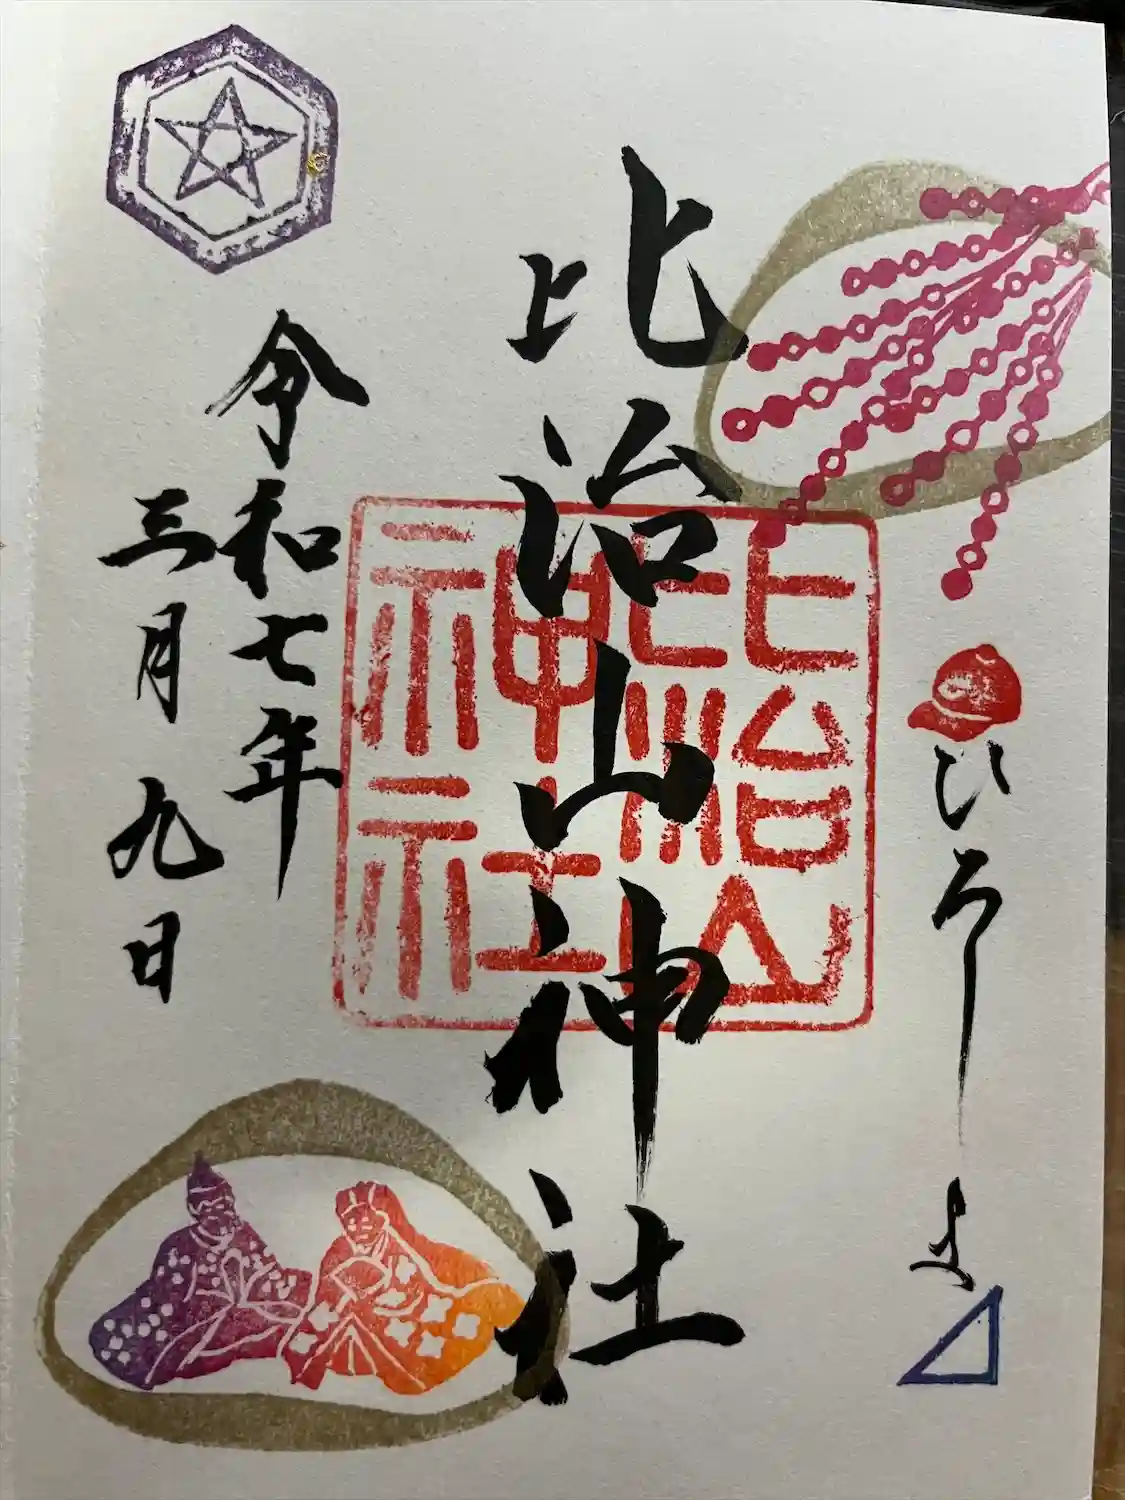 ひろしま
比治山神社
比治山比治山神社
令和七年
三月九日